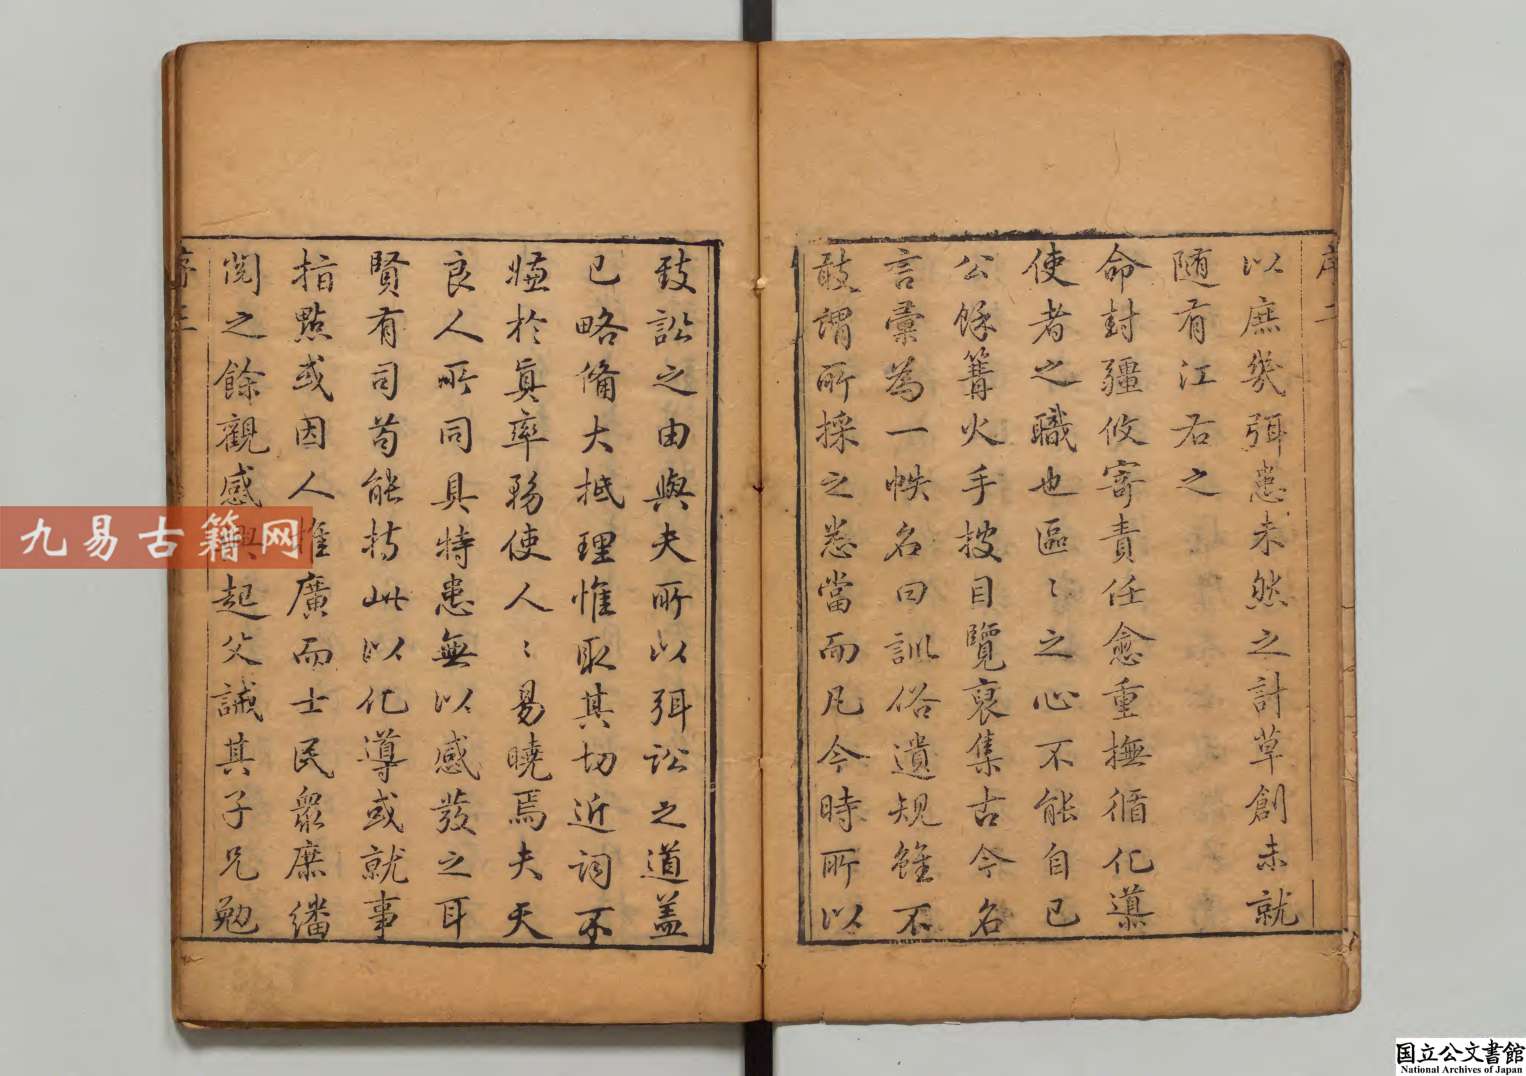 序二
以庶幾弭患未然之計草創未就
随有江右之
命封疆攸寄責任愈重撫循化導
使者之職也區〻之心不能自已
公餘篝火手披目覽裒集古今名
言彙為一帙名曰訓俗遺規雖不
敢謂所採之悉當而凡今時所以
致訟之由與夫所以弭訟之道盖
已略俻大抵理惟取其切近詞不
嫌於真率務使人〻易曉焉夫天
良人所同具特患無以感發之耳
賢有司苟能持此以化導或就事
指點或因人推廣而士民衆庶繙
閱之餘觀感興起父誡其子兄勉
序三
九易古籍网
国立公文書館
National Archives of Japan